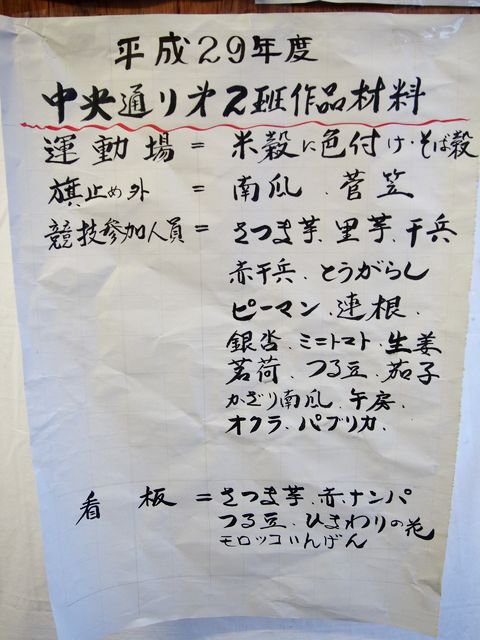 平成29年度
中央通り才2班作品材料
運動場 = 米穀に色付け・そば穀
旗止め外 = 南瓜、菅笠
競技参加人員 = さつま芋、里芋、干兵
赤干兵、とうがらし
ピーマン、連根、
銀杏、ミニトマト、生姜
茗荷、つる豆、茄子
かざり南瓜、午房、
オクラ、パプリカ、
看板 = さつま芋、赤、ナンバ
つる豆、ひまわりの花
モロッコいんげん